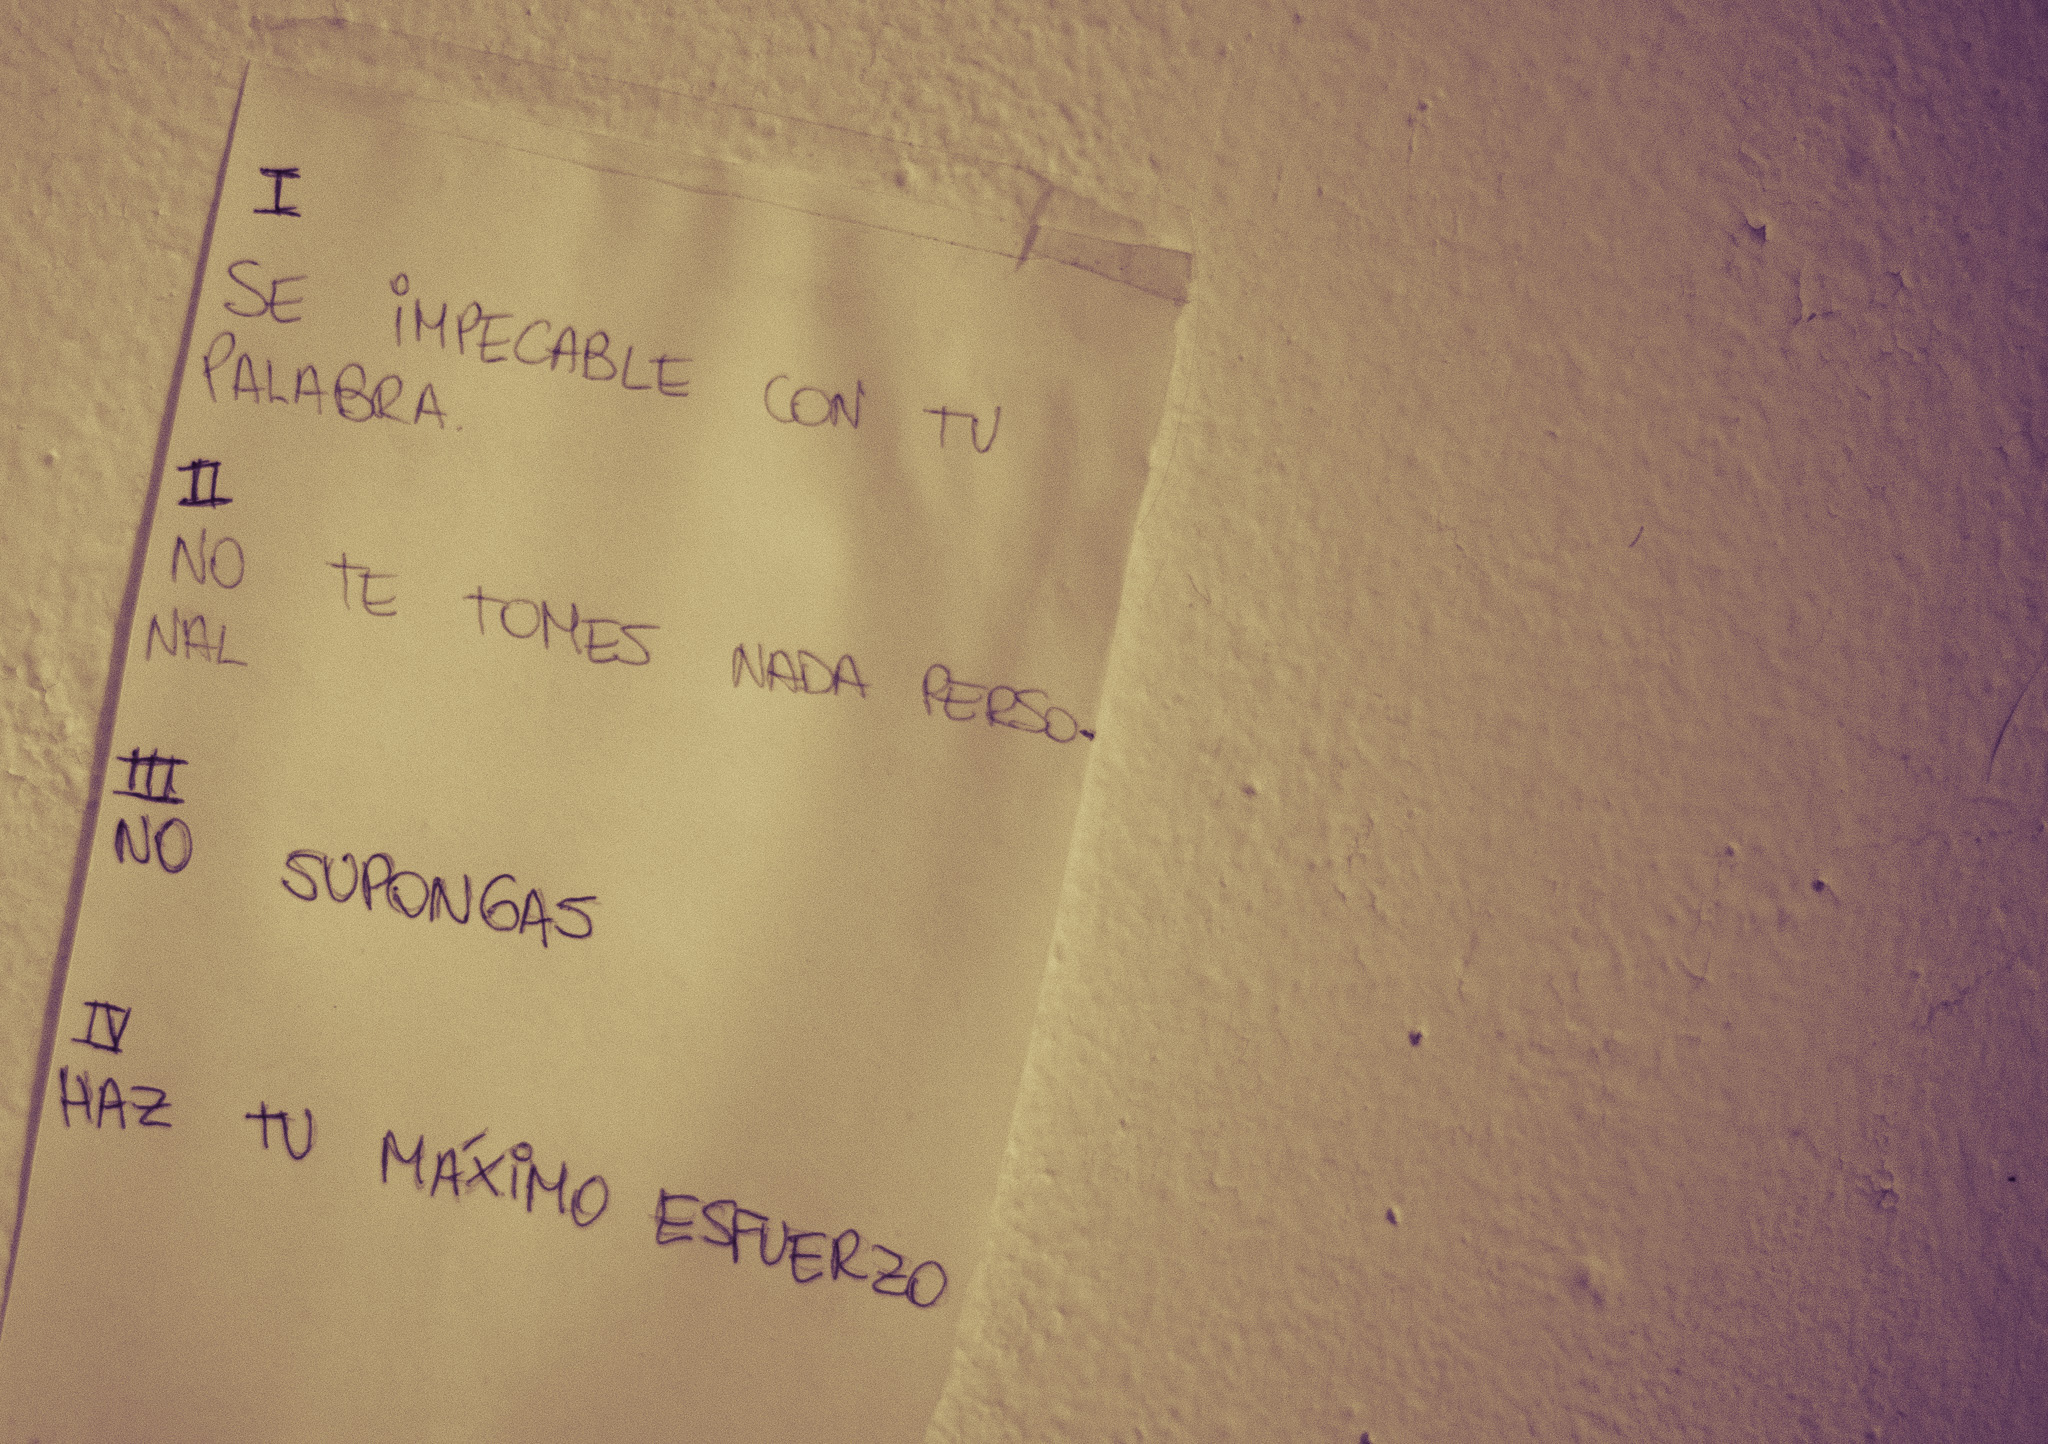 I
SE IMPECABLE CON TU
PALABRA.
II
NO TE TOMES NADA PERSO-
NAL
III
NO SUPONGAS
IV
HAZ TU MÁXIMO ESFUERZO